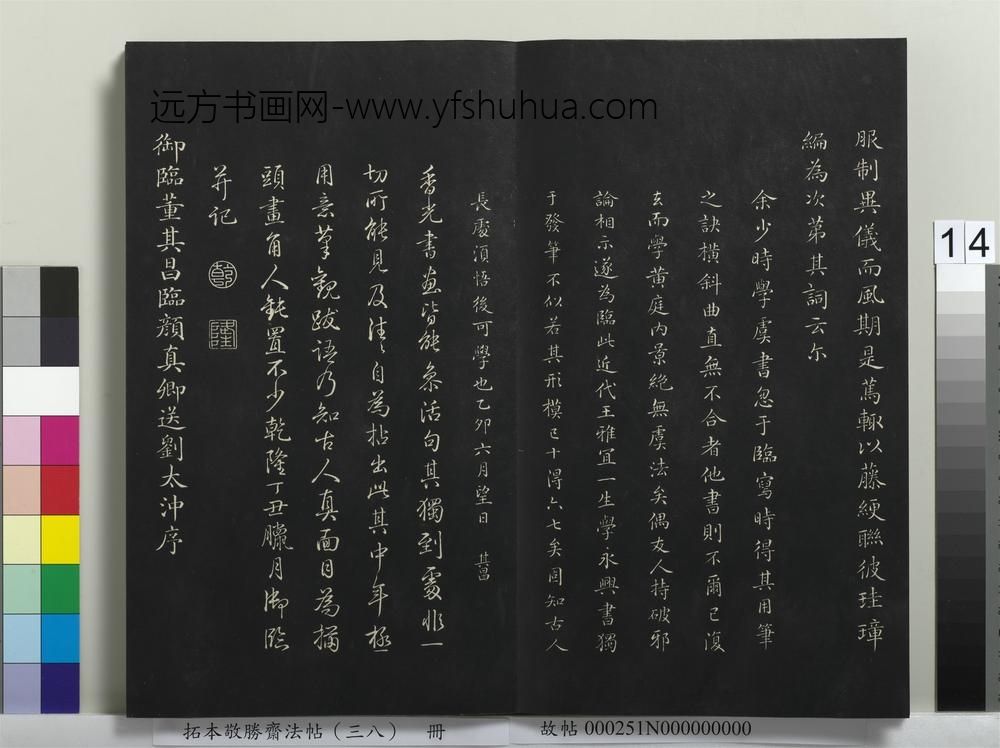 远方书画网-www.yfshuhua.com
服制異儀而風期是篤輙以藤綆聯彼珪璋
編為次第其詞云尔
余少時學虞書忽于臨寫時得其用筆
之訣橫斜曲直無不合者他書則不爾已復
去而學黄庭内景絶無虞法矣偶友人持破邪
論相示遂為臨此近代王雅宜一生學永興書獨
于發筆不似若其形模已十得六七矣固知古人
長處須悟後可學也乙卯六月望日 其昌
香光書畫皆能參活句其獨到處非一
切所能見及淮自為拈出此其中年極
用意筆觀跋語乃知古人真面目為描
頭畫角人鈍置不少乾隆丁丑臘月御臨
并记
乾
隆
御臨董其昌臨顔真卿送劉太沖序
14
拓本敬勝齋法帖（三八） 冊
故帖 000251N000000000